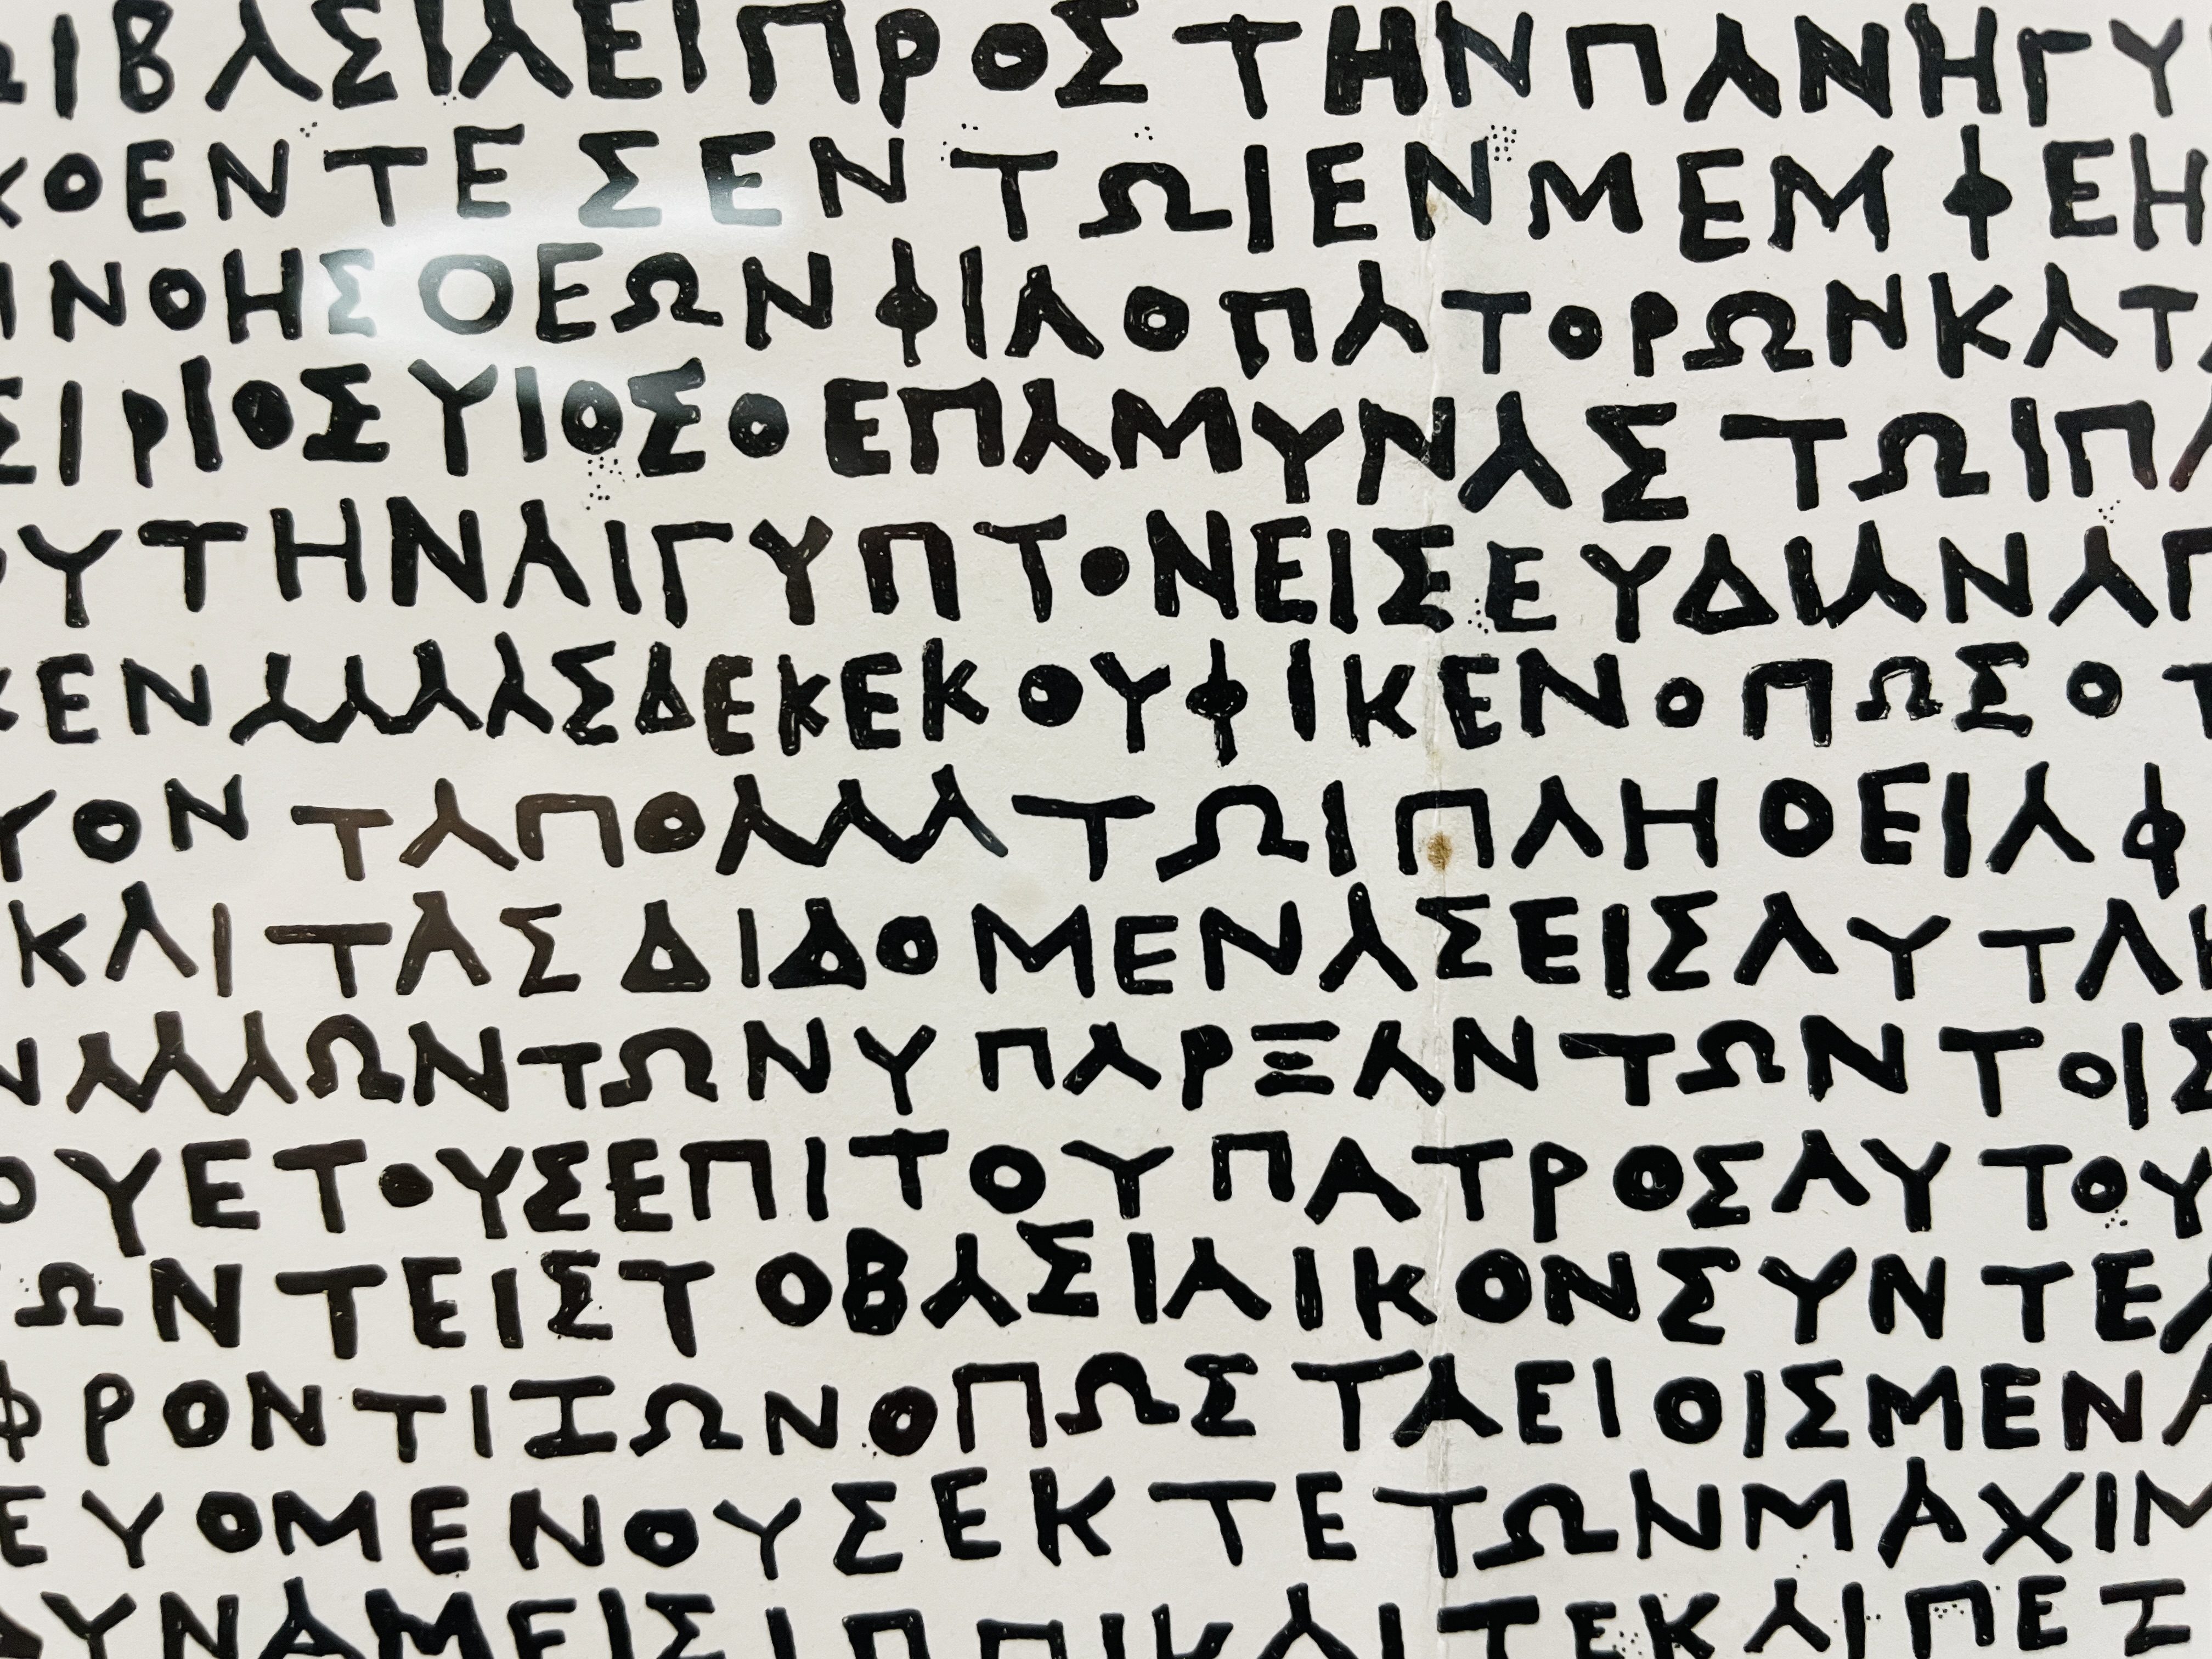 ΩΙΒΑΣΙΛΕΙΠΡΟΣΤΗΝΠΑΝΗΓΥ
ΧΘΕΝΤΕΣΕΝΤΩΙΕΝΜΕΜΦΕΗ
ΙΝΟΗΣΘΕΩΝΦΙΛΟΠΑΤΟΡΩΝΚΑΤ
ΣΙΡΙΟΣΥΙΟΣΟΕΠΑΜΥΝΑΣΤΩΙΠΑ
ΟΥΤΗΝΑΙΓΥΠΤΟΝΕΙΣΕΥΔΙΑΝΑΓ
ΚΕΝΑΛΛΑΣΔΕΚΕΚΟΥΦΙΚΕΝΟΠΩΣΟΤ
ΥΟΝΤΑΠΟΛΛΑΤΩΙΠΛΗΘΕΙΑΦ
ΚΑΙΤΑΣΔΙΔΟΜΕΝΑΣΕΙΣΑΥΤΑΚ
ΝΑΛΛΩΝΤΩΝΥΠΑΡΞΑΝΤΩΝΤΟΙΣ
ΟΥΕΤΟΥΣΕΠΙΤΟΥΠΑΤΡΟΣΑΥΤΟΥ
ΩΝΤΕΙΣΤΟΒΑΣΙΛΙΚΟΝΣΥΝΤΕΛ
ΦΡΟΝΤΙΖΩΝΟΠΩΣΤΑΕΙΘΙΣΜΕΝΑ
ΕΥΟΜΕΝΟΥΣΕΚΤΕΤΩΝΜΑΧΙΜ
ΔΥΝΑΜΕΙΣΙΠΠΙΚΑΙΤΕΚΑΙΠΕΖ